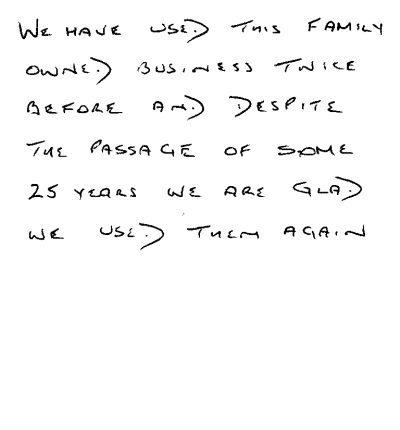 WE HAVE USED THIS FAMILY
OWNED BUSINESS TWICE
BEFORE AND DESPITE
THE PASSAGE OF SOME
25 YEARS WE ARE GLAD
WE USED THEM AGAIN